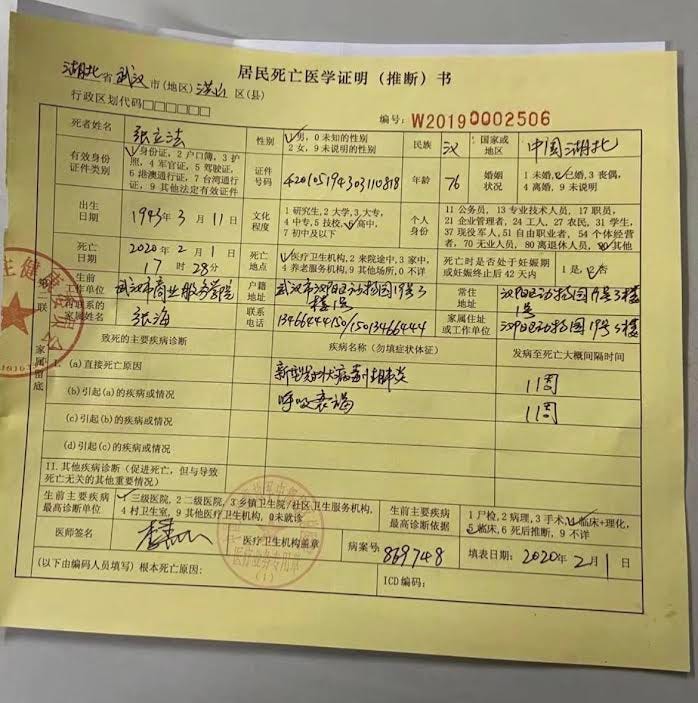 居民死亡医学证明（推断）书
湖北省武汉市(地区)洪山区(县)
行政区划代码□□□□□□
编号: W20190002506
死者姓名 张立法 性别 1男, 0未知的性别 2女, 9未说明的性别 民族 汉 国家或地区 中国湖北
有效身份证件类别 1身份证, 2户口簿, 3护照, 4军官证, 5驾驶证, 6港澳通行证, 7台湾通行证, 9其他法定有效证件 证件号码 420105194303110818 年龄 76 婚姻状况 1未婚, 2已婚, 3丧偶, 4离婚, 9未说明
出生日期 1943年3月11日 文化程度 1研究生, 2大学, 3大专, 4中专, 5技校, 6高中, 7初中及以下 个人身份 11公务员, 13专业技术人员, 17职员, 21企业管理者, 24工人, 27农民, 31学生, 37现役军人, 51自由职业者, 54个体经营者, 70无业人员, 80离退休人员, 90其他
死亡日期 2020年2月1日 17时28分 死亡地点 1医疗卫生机构, 2来院途中, 3家中, 4养老服务机构, 9其他场所, 0不详 死亡时是否处于妊娠期或妊娠终止后42天内 1是, 2否
生前工作单位 武汉市商业服务学院 户籍地址 武汉市汉阳区动物园19号3楼1号 常住地址 汉阳区动物园19号3楼1号
联系的家属姓名 张海 联系电话 13466444150/15013466444 家属住址或工作单位 汉阳区动物园19号3楼
致死的主要疾病诊断 疾病名称(勿填症状体征) 发病至死亡大概间隔时间
I.(a)直接死亡原因 新型冠状病毒肺炎 1周
(b)引起(a)的疾病或情况 呼吸衰竭 1周
(c)引起(b)的疾病或情况
(d)引起(c)的疾病或情况
II.其他疾病诊断(促进死亡, 但与导致死亡无关的其他重要情况)
生前主要疾病最高诊断单位 1三级医院, 2二级医院, 3乡镇卫生院/社区卫生服务机构, 4村卫生室, 9其他医疗卫生机构, 0未就诊 生前主要疾病最高诊断依据 1尸检, 2病理, 3手术, 4临床+理化, 5临床, 6死后推断, 9不详
医师签名 医疗卫生机构盖章 病案号 869748 填表日期: 2020年2月1日
(以下由编码人员填写) 根本死亡原因: ICD编码:
联
家属留底
医疗业务专用章
(1)